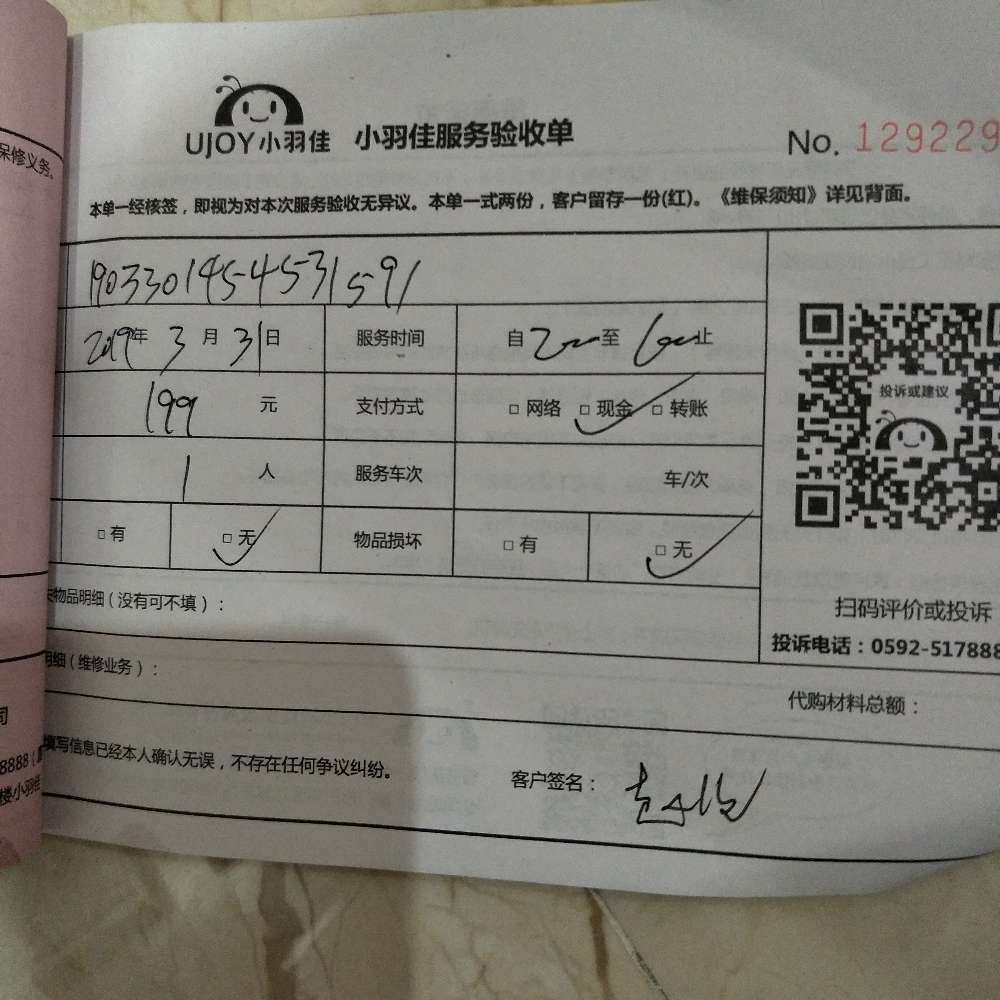 保修义务。
UJOY小羽佳 小羽佳服务验收单 No. 129229
本单一经核签，即视为对本次服务验收无异议。本单一式两份，客户留存一份(红)。《维保须知》详见背面。
1903301454531591
2019年 3 月 31 日 服务时间 自 至 止
199 元 支付方式 □ 网络 □ 现金 □ 转账
投诉或建议
1 人 服务车次 车/次
□ 有 □ 无 物品损坏 □ 有 □ 无
物品明细（没有可不填）：
扫码评价或投诉
投诉电话：0592-517888
明细（维修业务）：
代购材料总额：
司
填写信息已经本人确认无误，不存在任何争议纠纷。
客户签名：
8888（
楼小羽佳